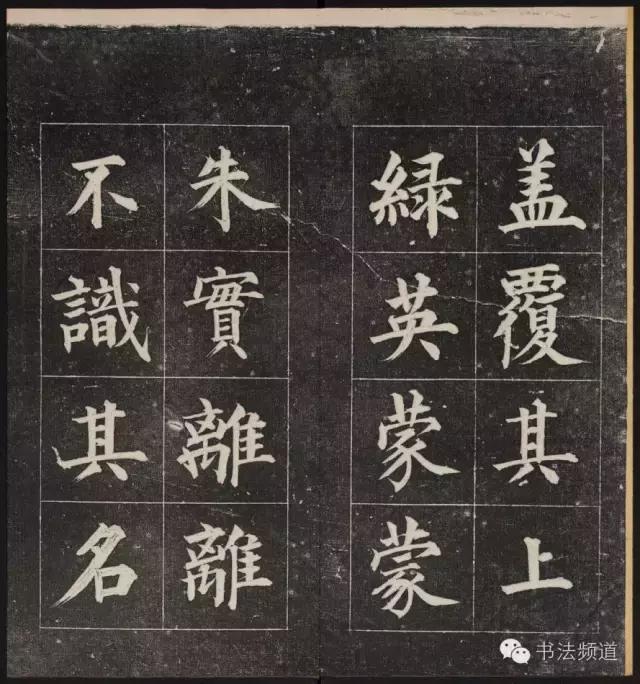 盖覆其上
緑英蒙蒙
朱實離離
不識其名
书法频道